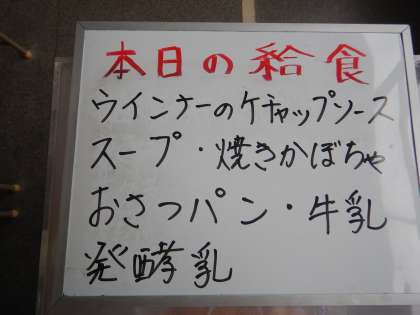 本日の給食
ウインナーのケチャップソース
スープ・焼きかぼちゃ
おさつパン・牛乳
発酵乳